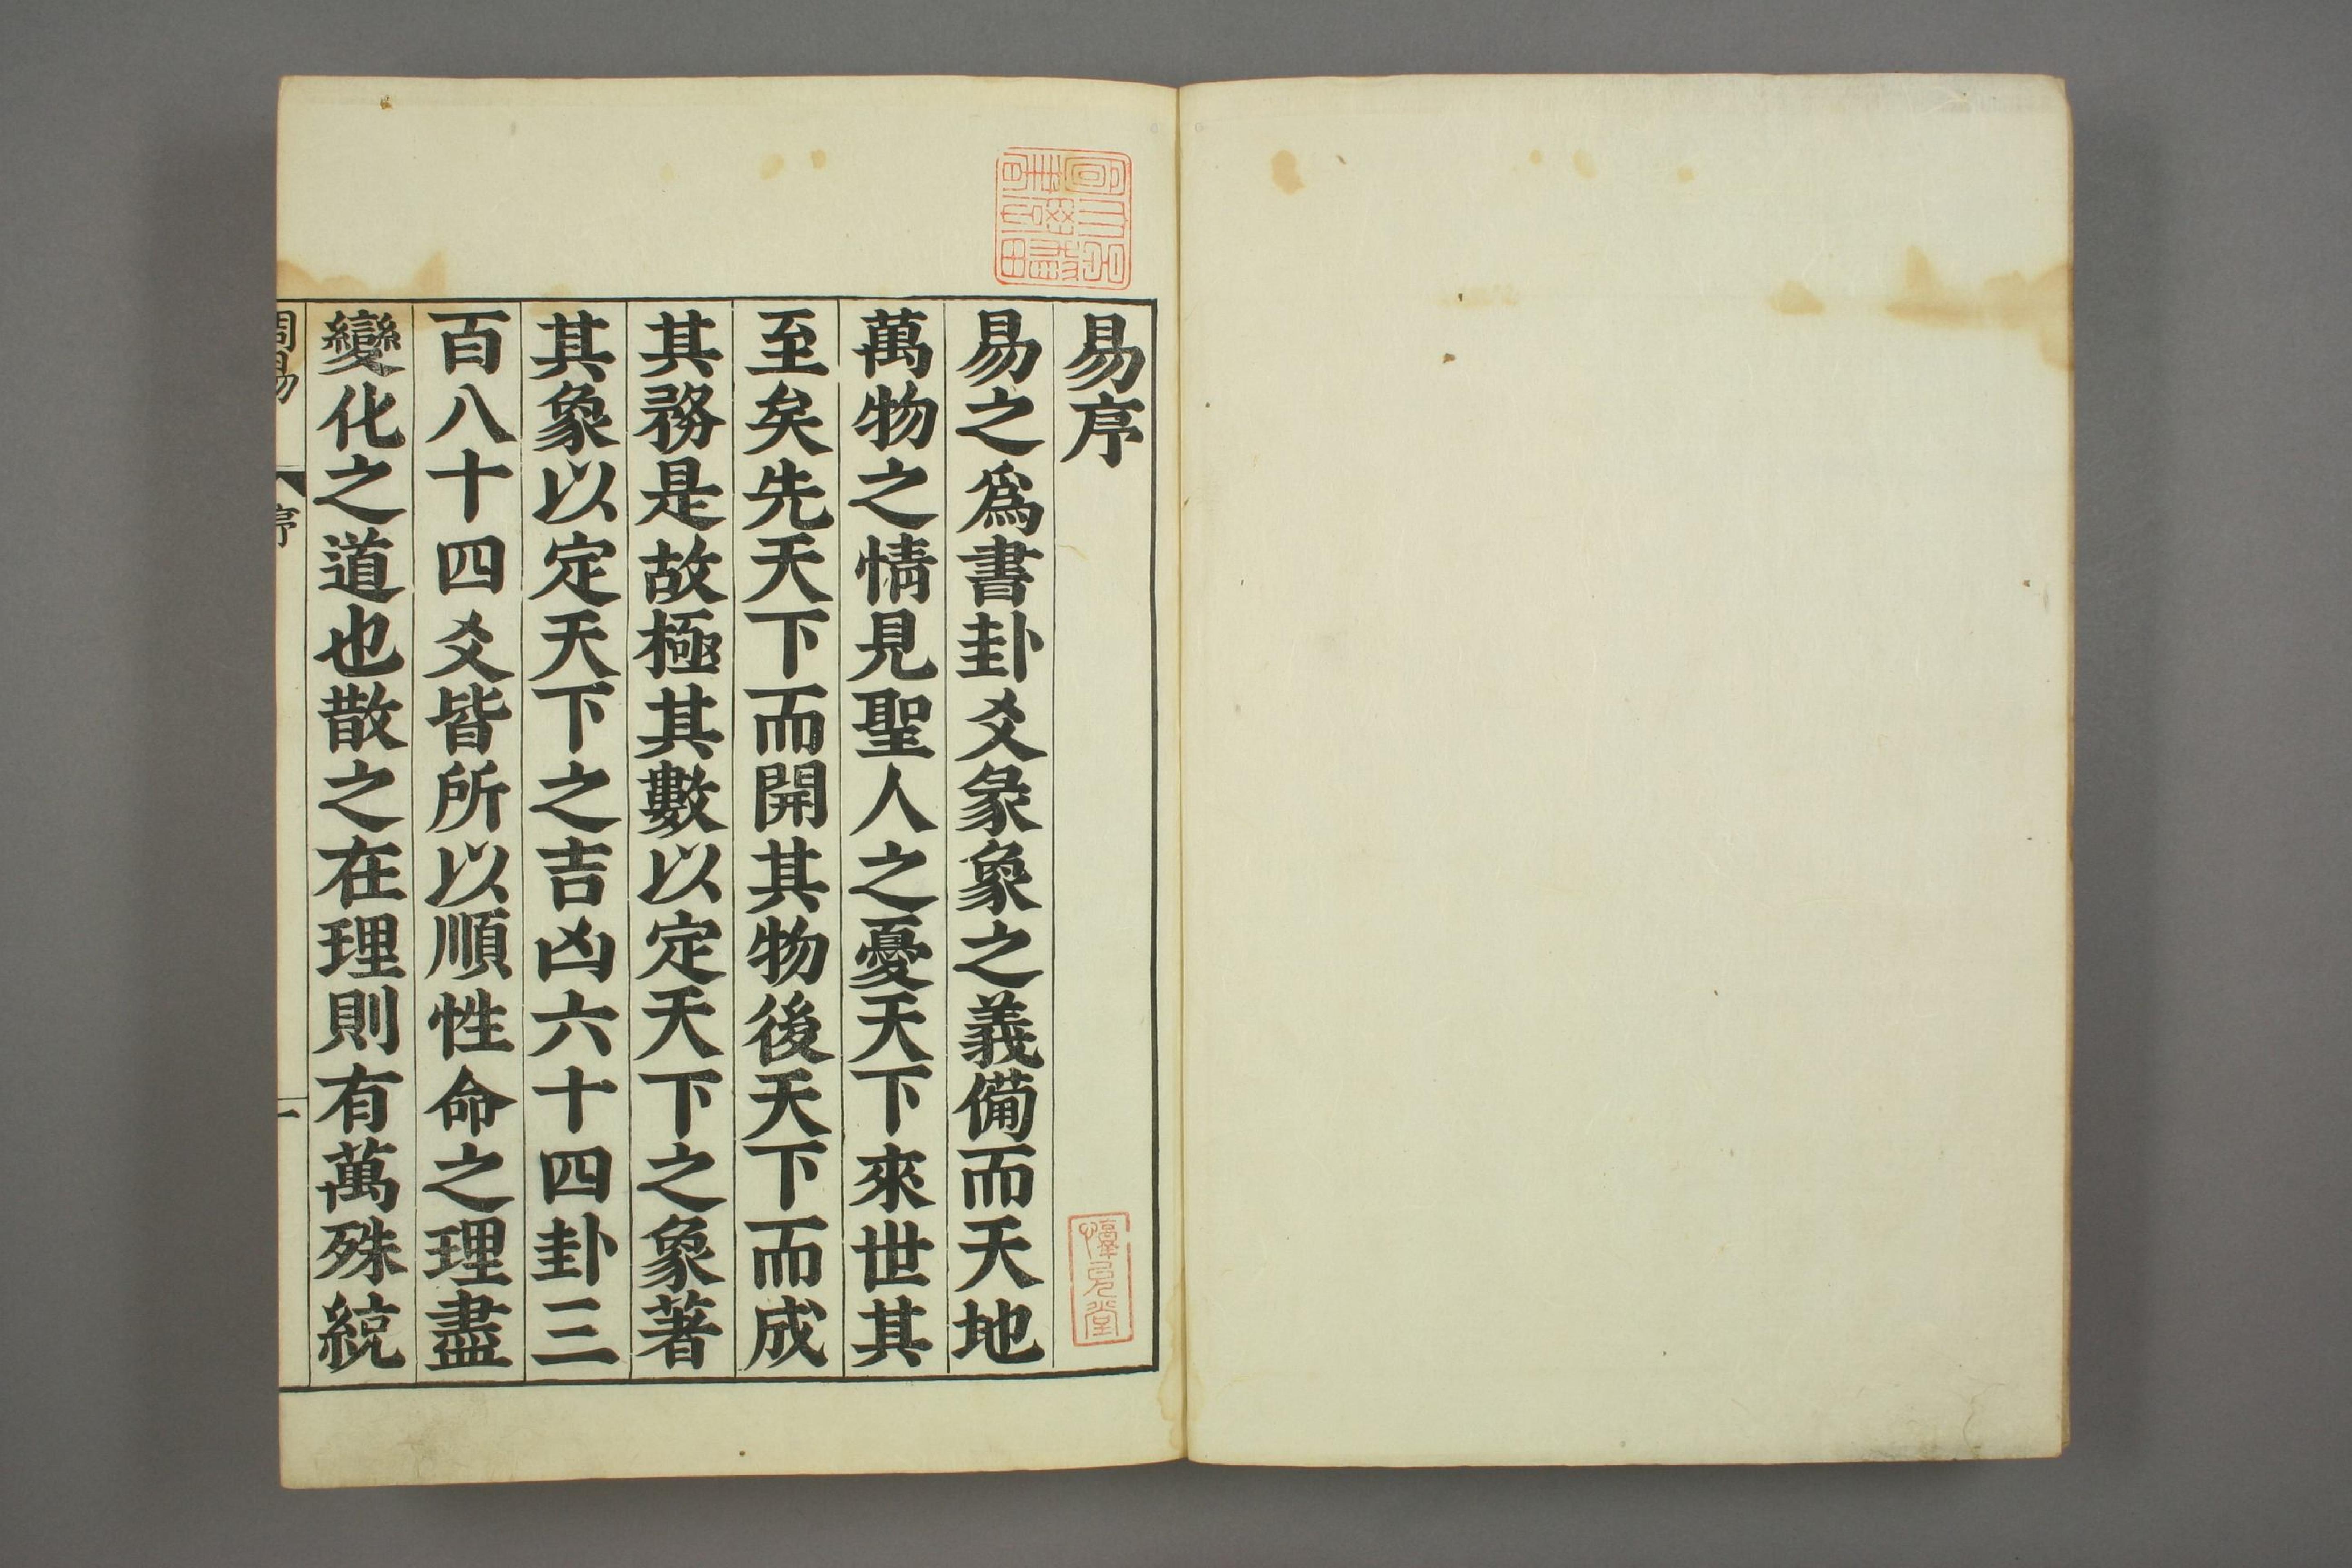 易序
易之爲書卦爻彖象之義備而天地
萬物之情見聖人之憂天下來世其
至矣先天下而開其物後天下而成
其務是故極其數以定天下之象著
其象以定天下之吉凶六十四卦三
百八十四爻皆所以順性命之理盡
變化之道也散之在理則有萬殊統
周易
序
一